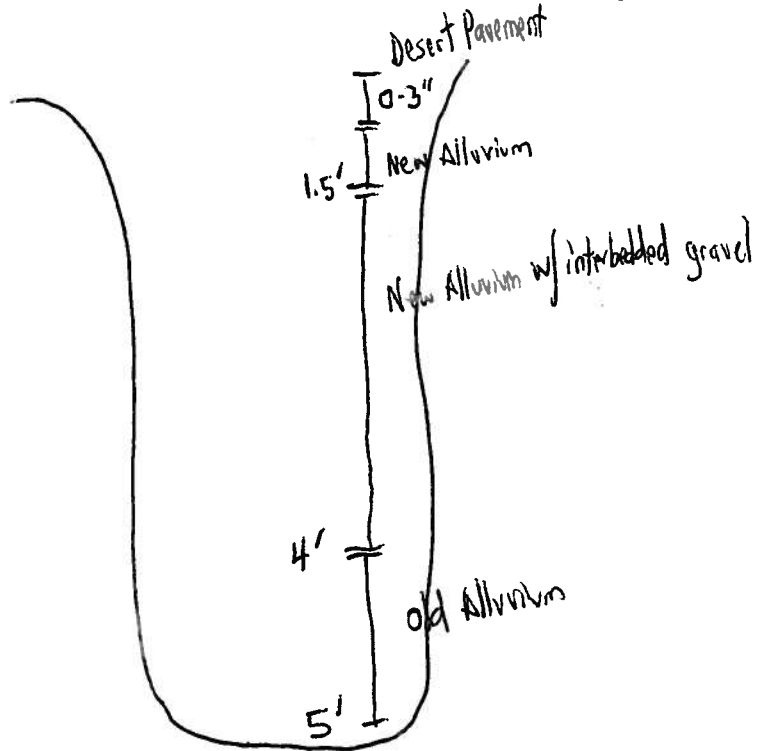 Desert Pavement
0-3"
New Alluvium
1.5'
New Alluvium w/ interbedded gravel
4'
Old Alluvium
5'